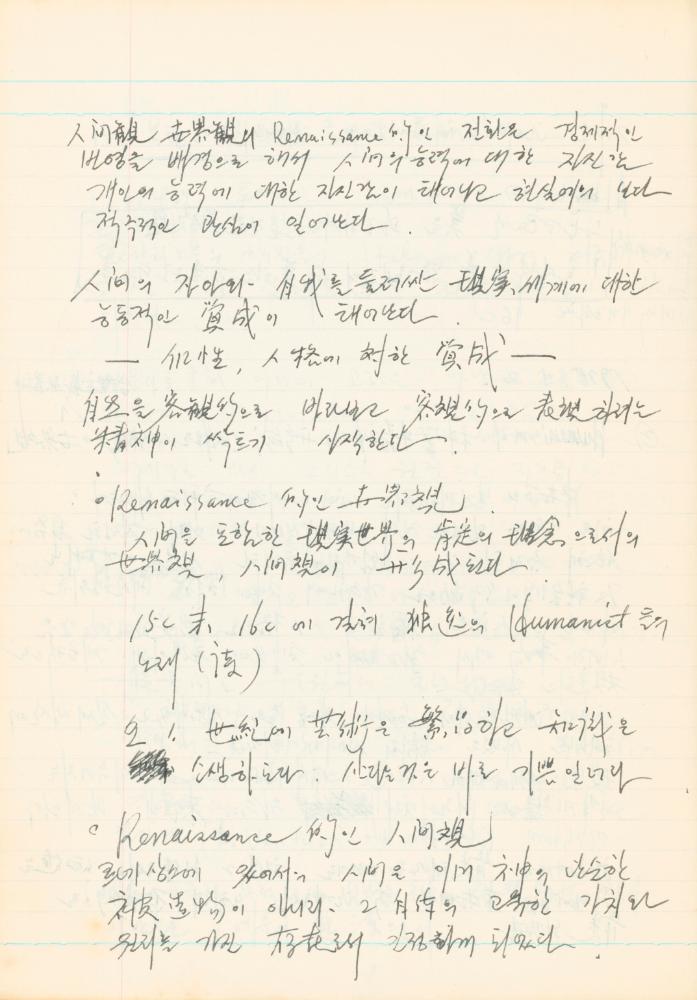 人间観 世界観의 Renaissance的인 전환은 경제적인
번영을 배경으로 해서 人间의 능력에 대한 자신감
개인의 능력에 대한 자신감이 태어나고 현실에의 보다
적극적인 관심이 일어난다.
人间의 자아와 自我를 둘러싼 現実세계에 대한
능동적인 賛成이 태어난다.
— 個性, 人格에 대한 賛成 —
自然을 客観的으로 바라보고 客観的으로 表現하려는
精神이 싹트기 시작한다.
○ Renaissance的인 世界観
人间을 포함한 現実世界의 肯定의 理念으로서의
世界観, 人间観이 形成된다.
15c 末, 16c 에 걸쳐 独逸의 Humanist 들의
노래 (詩)
오! 世紀여 芸術은 繁栄하고
소생하도다. 산다는것은 바로 기쁨일러라
○ Renaissance的인 人间観
르네상스에 있어서의 人间은 이미 神의 단순한
被造物이 아니라 그 自体의 고유한 가치와
권리를 가진 存在로서 긍정하게 되었다.